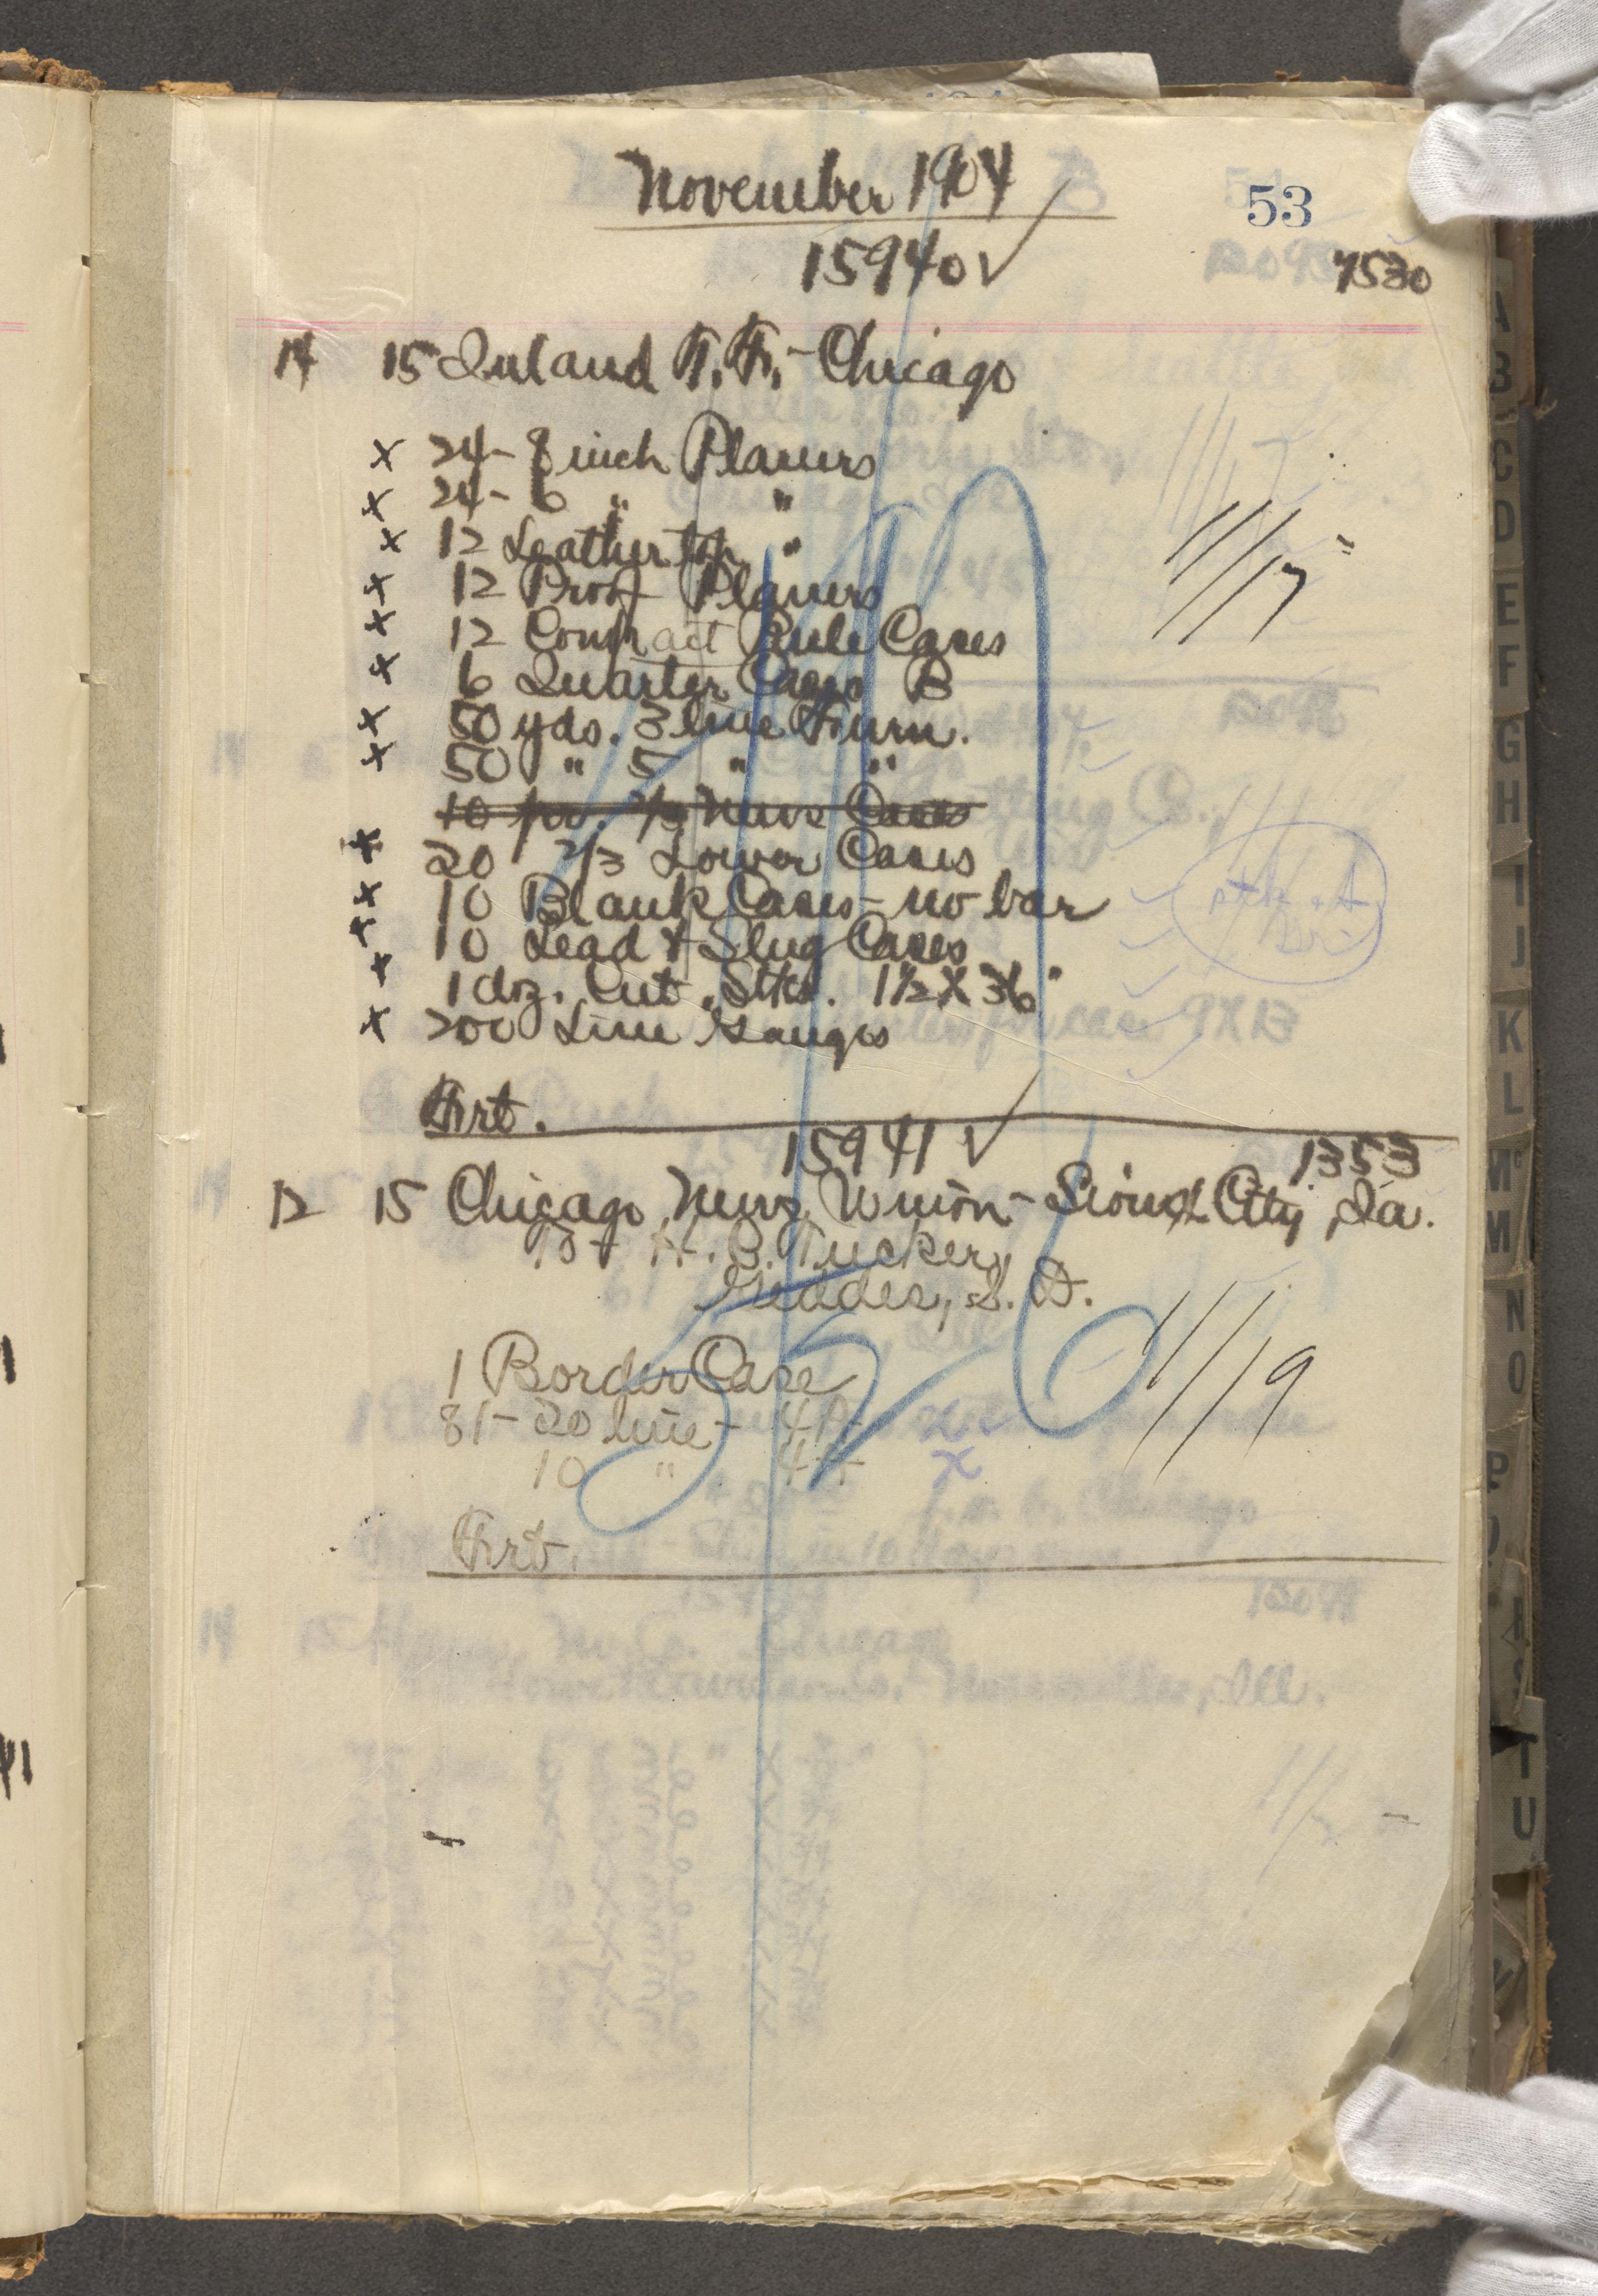 November 1904
53
15940 √
7530
14 15 Inland T. F. - Chicago
x 24 - 8 inch Planers
x 24 - 6 " "
x 12 Leather top "
x 12 Proof Planers
x 12 Contract Rule Cases
x 6 Quarter Cases B
x 50 yds. 3 line Furn.
x 50 " 5 " "
10 pr. 2/3 News Cases
x 20 2/3 Lower Cases
x 10 Blank Cases - no bar
x 10 Lead & Slug Cases
x 1 doz. Cut. Stks. 1½ X 36"
x 200 Line Gauges
11/17
Frt.
15941 √
1353
12 15 Chicago News Union - Sioux City, Ia.
To H. B. Tucker,
Geddes, S. D.
1 Border Case
81 - 20 line - 4A x
10 " 4A x
11/19
Frt.
A
B
C
D
E
F
G
H
I
J
K
L
Mc
M
N
O
P
T
U